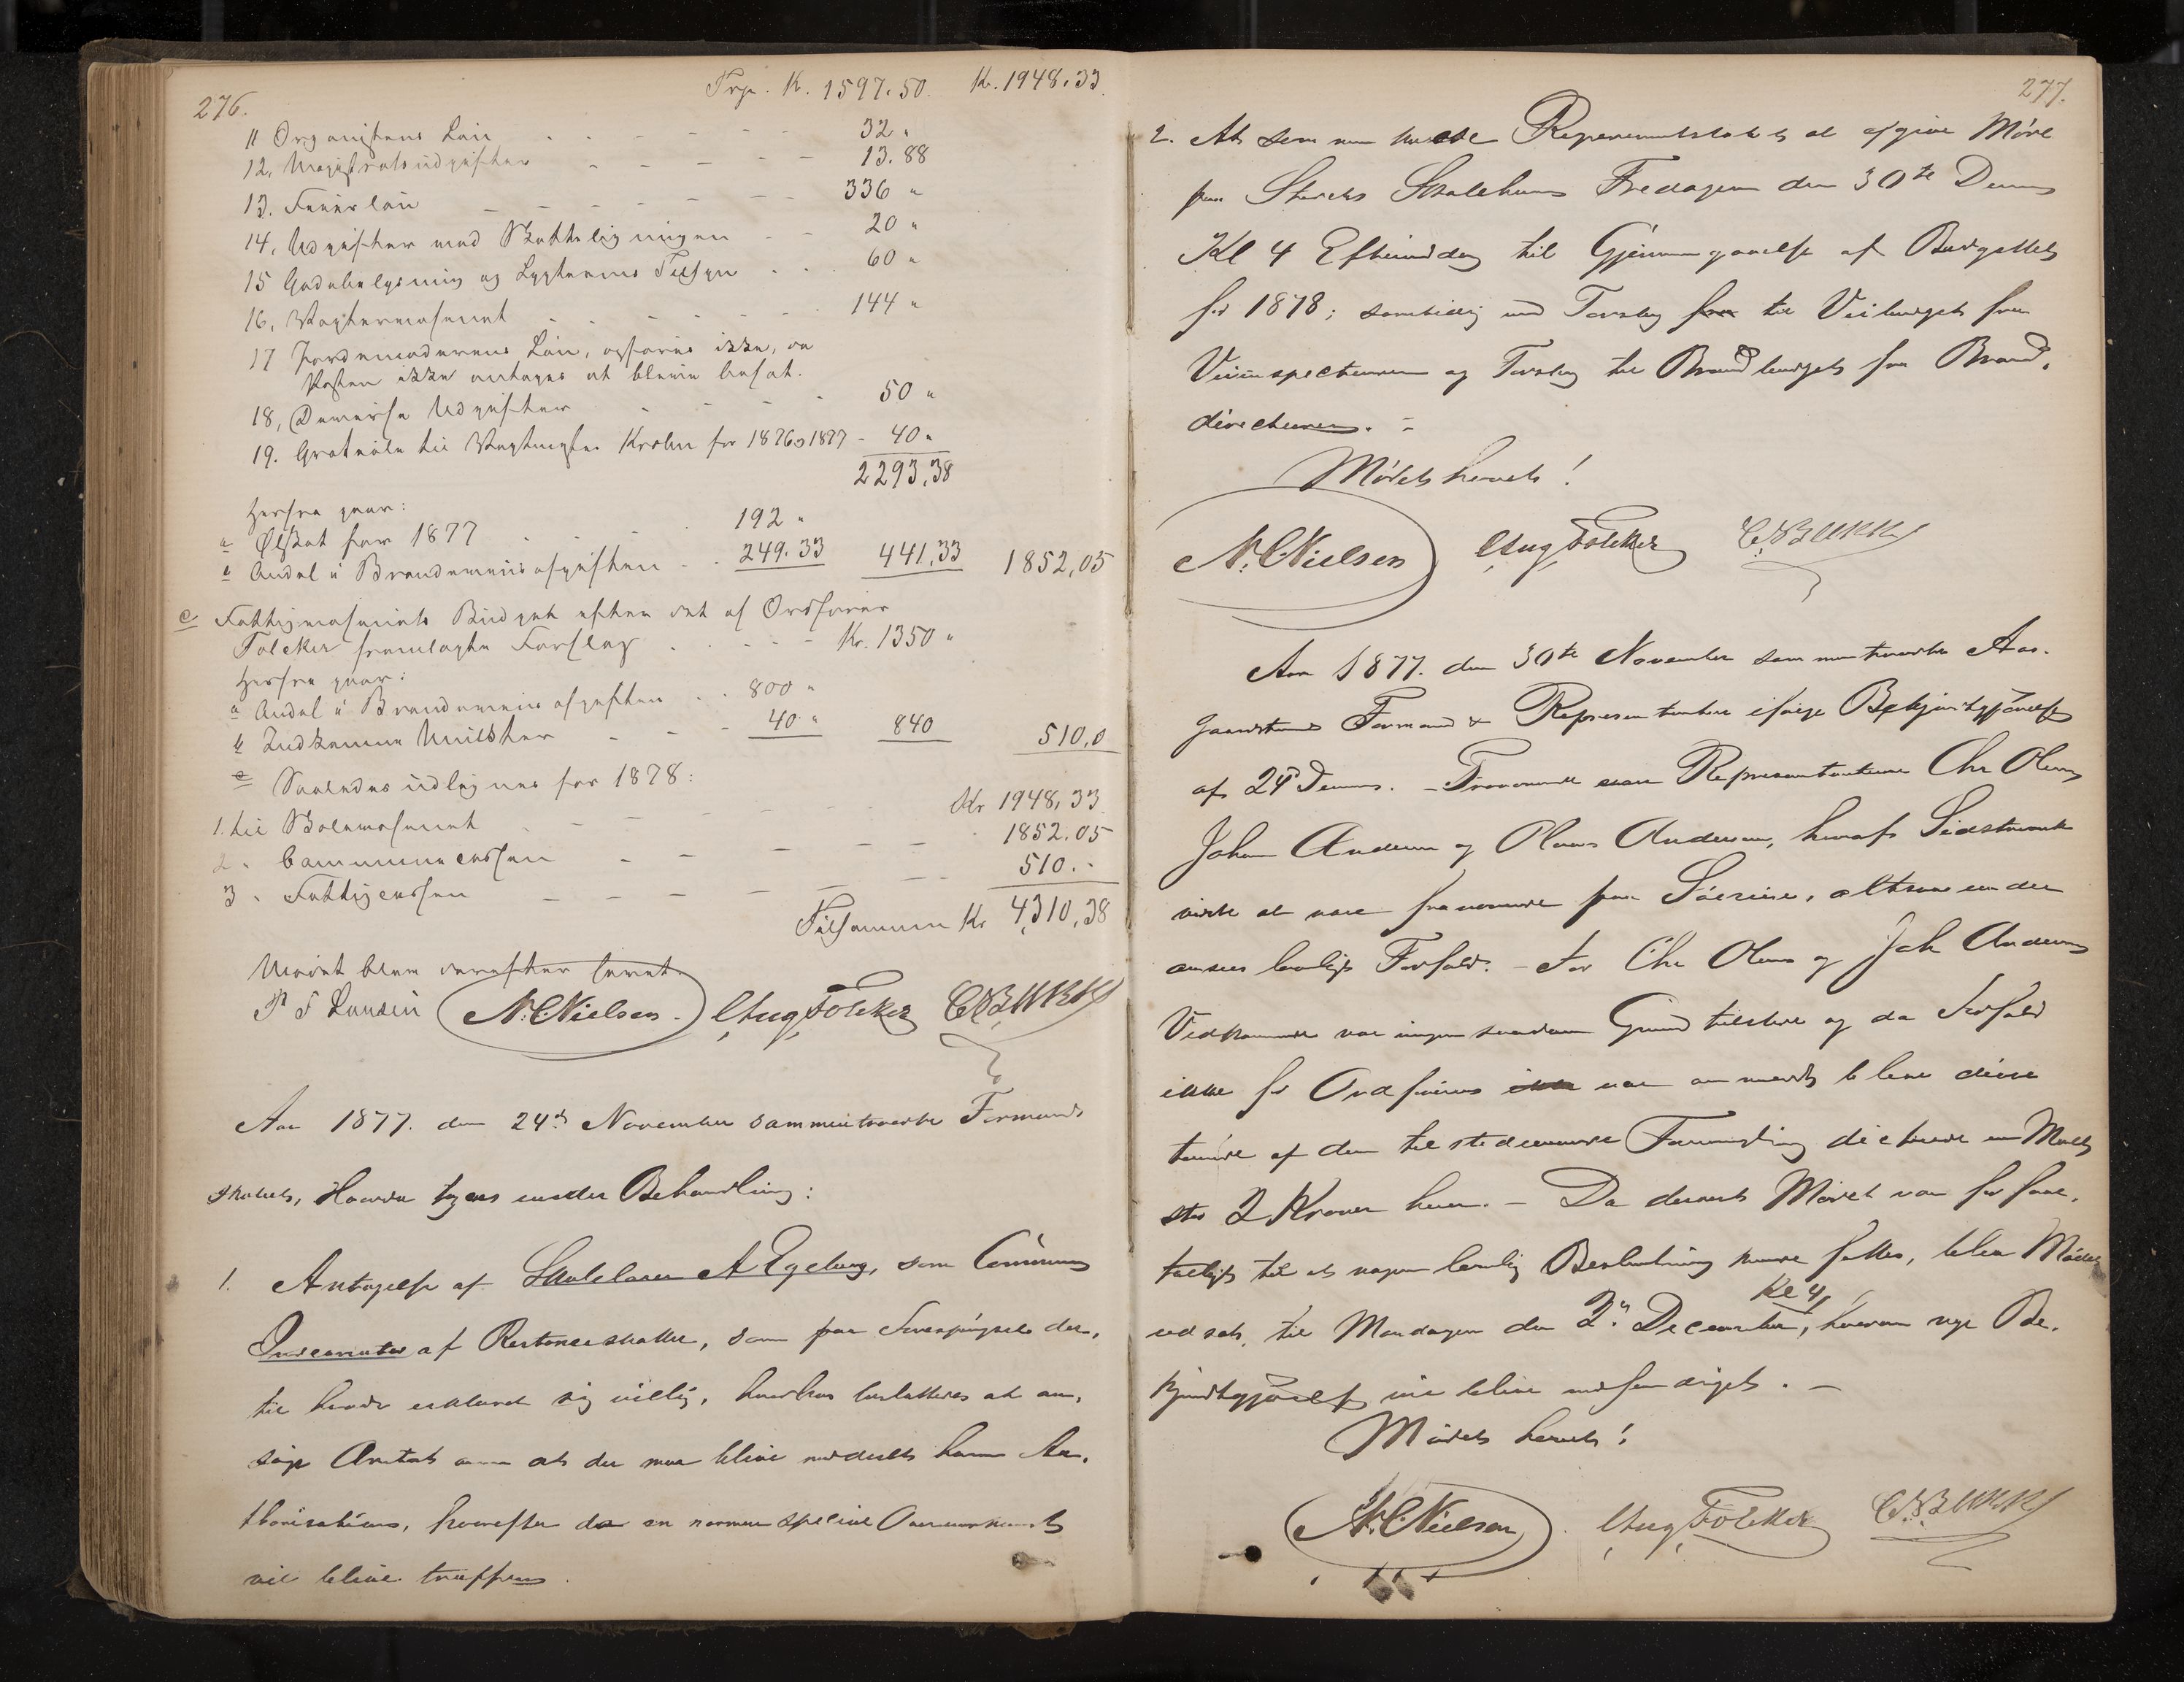 276.
Trp. Kr. 1597.50. Kr. 1948.33
11 Organistens Løn 32 "
12. Magistratsudgifter 13.88
13. Feierløn 336 "
14. Udgifter med Skatteligningen 20 "
15 Gadebelysning og Lygternes Tilsyn 60 "
16. Vægtervæsenet 144 "
17 Jordemoderens Løn, opføres ikke, da
Posten ikke antages at blive besat.
18, Diverse Udgifter 50 "
19. Gratiale til Krohn for 1876 og 1877 - 40 "
2293.38
Herfra gaar:
a Ølskat for 1877 192 "
b Andel i Brændevinsafgiften 249.33 441.33 1852,05
c Fattigvæsenets Budget efter det af Ordfører
Følcker fremlagte Forslag Kr. 1350 "
Herfra gaar:
a Andel i Brændevinsafgiften 800 "
b Indkomne Mulkter 40 " 840 510,0
Saaledes udlignes for 1878:
1. til Skolevæsenet Kr 1948,33
2 " Communecassen 1852.05
3 " Fattigcassen 510.-
Tilsammen Kr 4,310,38
Mødet blev derefter hævet.
P F Larsen N. C. Nielsen. Aug Følcker
Aar 1877. den 24de November sammentraadte Formand-
skabet, Hvorda toges under Behandling:
1. Antagelse af Skolelærer A Egeberg, som
Incassator af Restanceskatter, som paa Forespørgsel der-
til havde erklæret sig villig, hvorhos besluttedes at an-
søge Amtet om at der maa blive meddelt ham Au-
thorisation, hvorefter da en nærmere speciel Overenskomst
vil blive truffen.
277.
2. At sammenkalde Repræsentskabet at afgive Møde
paa Stedets Skolehuus Fredagen den 30te Dennes
Kl 4 Eftermiddag til Gjennemgaaelse af Budgettet
for 1878; samtidig med Forslag til Veibudget fra
Veiinspecteuren og Forslag til Brandbudget fra Brand-
directeuren. -
Mødet hævet!
N. C. Nielsen Aug Følcker
Aar 1877. den 30te November sammentraadte Aas-
gaardstrands Formænd & Repræsentanter ifølge Bekjendtgjørelse
af 24de Dennes. - Fraværende vare Repræsentanterne Chr Olsen
Johan Andersen og Olaus Andersen, hvoraf Sidstnævnte
vides at være fraværende paa Søreise, altsaa
ansees lovligt Forfald. - For Chr Olsen og Joh Andersen
Vedkommende var ingen saadan Grund tilstede og da Forfald
ikke for Ordføreren var anmeldt bleve disse
tvende af den tilstedeværende Forsamling dicteret en Mulkt
stor 2 Kroner hver. - Da derved Mødet var for faa-
talligt til at nogen lovlig Beslutning kunde fattes, blev Mødet
udsat til Mandagen den 3de December, Kl 4, hvorom nye Be-
kjendtgjørelse vil blive udfærdiget. -
Mødet hævet!
N. C. Nielsen Aug Følcker